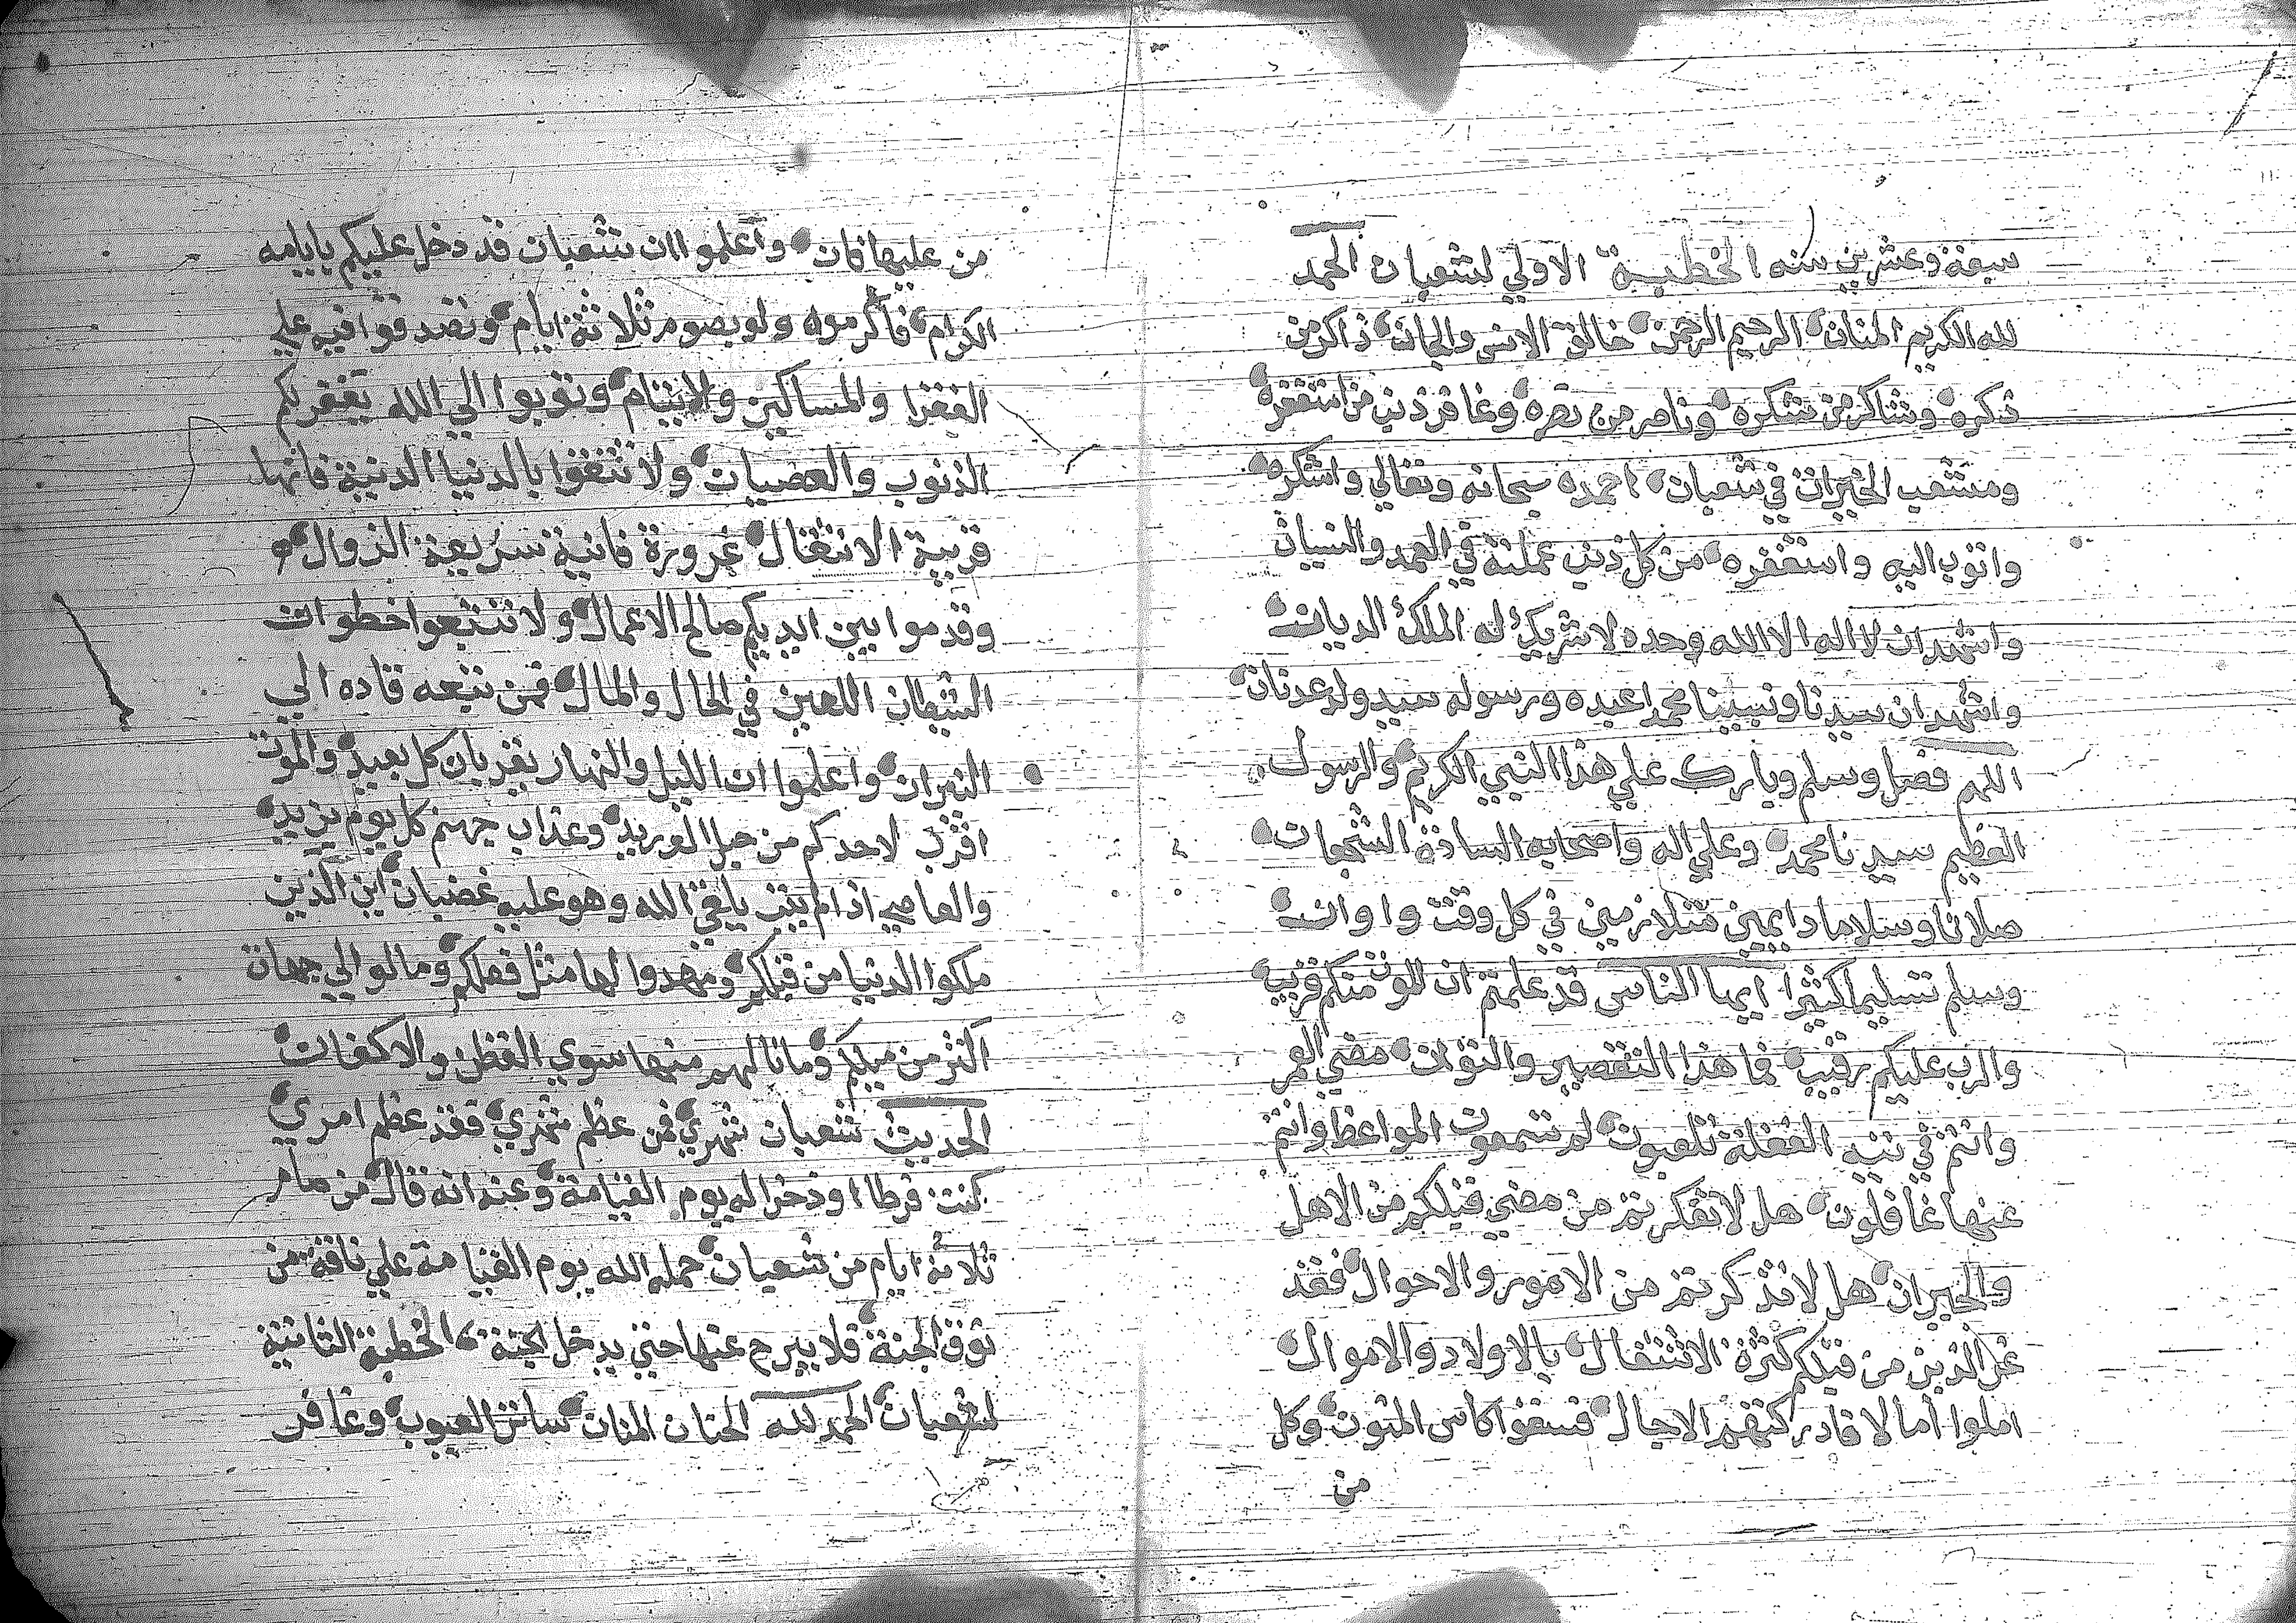 سبعة وعشرين سنه الخطبة الاولي لشعبان الحمد
لله الكريم المنان الرحيم الرحمن خالق الانس والجان ذاكر من
ذكره وشاكر من شكره وناصر من نصره وغافر ذنب من استغفره
ومشعب الخيرات في شعبان احمده سبحانه وتعالي واشكره
واتوب اليه واستغفره من كل ذنب عملته في العمد والنسيان
واشهد ان لا اله الا الله وحده لا شريك له الملك الديان
واشهد ان سيدنا ونبينا محمدا عبده ورسوله سيد ولد عدنان
اللهم فصل وسلم وبارك علي هذا النبي الكريم والرسول
العظيم سيدنا محمد وعلي اله واصحابه السادة الشجعان
صلاتا وسلاما دايمين متلازمين في كل وقت واوان
وسلم تسليما كثيرا ايها الناس قد علمتم ان الموت منكم قريب
والرب عليكم رقيب فما هذا التقصير والتوان مضي العمر
وانتم في تيه الغفلة تلعبون لم تسمعون المواعظ وانتم
عنها غافلون هل لا تفكرتم من مضي قبلكم من الاهل
والجيران هل لا تذكرتم من الامور والاحوال فقد
غر الذين من قبلكم كثرة الاشتغال بالاولاد والاموال
املوا امالا فادركتهم الاجال فسقوا كاس المنون وكل
من
من عليها فان واعلموا ان شعبان قد دخل عليكم بايامه
الكرام فاكرموه ولو بصوم ثلاثة ايام وتصدقوا فيه علي
الفقرا والمساكين والايتام وتوبوا الي الله يغفر لكم
الذنوب والعصيان ولا تثقوا بالدنيا الدنية فانها
قريبة الانتقال غرورة فانية سريعة الزوال
وقدموا بين ايديكم صالح الاعمال ولا تتبعوا خطوات
الشيطان اللعين في الحال والمال فمن تبعه قاده الي
النيران واعلموا ان الليل والنهار يقربان كل بعيد والموت
اقرب لاحدكم من حبل الوريد وعذاب جهنم كل يوم يزيد
والعاصي اذا لم يتب يلقي الله وهو عليه غضبان اين الذين
ملكوا الدنيا من قبلكم ومهدوا لها مثل فعلكم ومالوا الي جهات
اكثر من ميلكم وما نالهم منها سوي القطن والاكفان
الحديث شعبان شهري فمن عظم شهري فقد عظم امري
كنت فرطا وذخرا له يوم القيامة وعنه انه قال من صام
ثلاثة ايام من شعبان حمله الله يوم القيامة علي ناقة من
نوق الجنة فلا يبرح عنها حتي يدخل الجنة الخطبة الثانية
لشعبان الحمد لله الحنان المنان ساتر العيوب وغافر